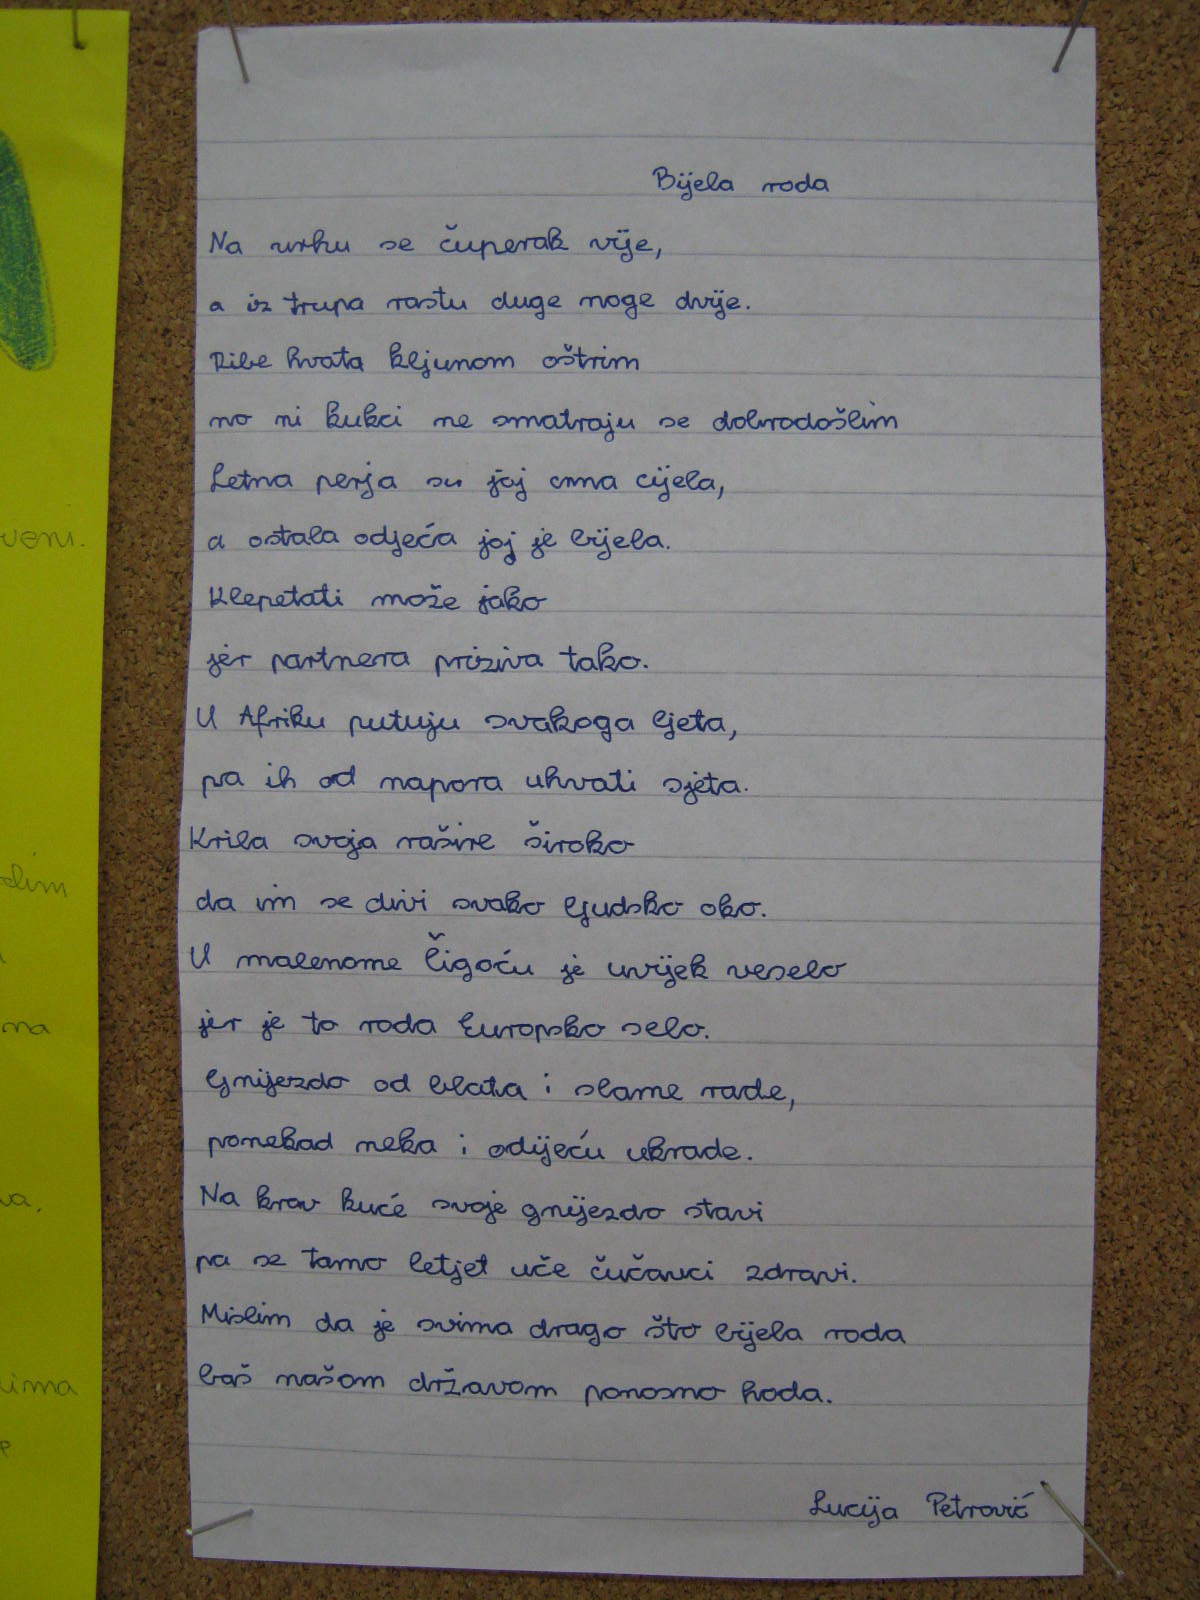 Bijela roda
Na vrhu se čuperak vije,
a iz trupa rastu duge noge dvije.
Ribe hvata kljunom oštrim
no ni kukci ne smatraju se dobrodošlim
Letna perja su joj crna cijela,
a ostala odjeća joj je bijela.
Klepetati može jako
jer partnera priziva tako.
U Afriku putuju svakoga ljeta,
pa ih od napora uhvati sjeta.
Krila svoja rašire široko
da im se divi svako ljudsko oko.
U malenome Čigoću je uvijek veselo
jer je to roda Europsko selo.
Gnijezdo od blata i slame rade,
ponekad neka i odijeću ukrade.
Na krov kuće svoje gnijezdo stavi
pa se tamo letjet uče čučavci zdravi.
Mislim da je svima drago što bijela roda
baš našom državom ponosno hoda.
Lucija Petrović
veni.
dim
na
va.
ima